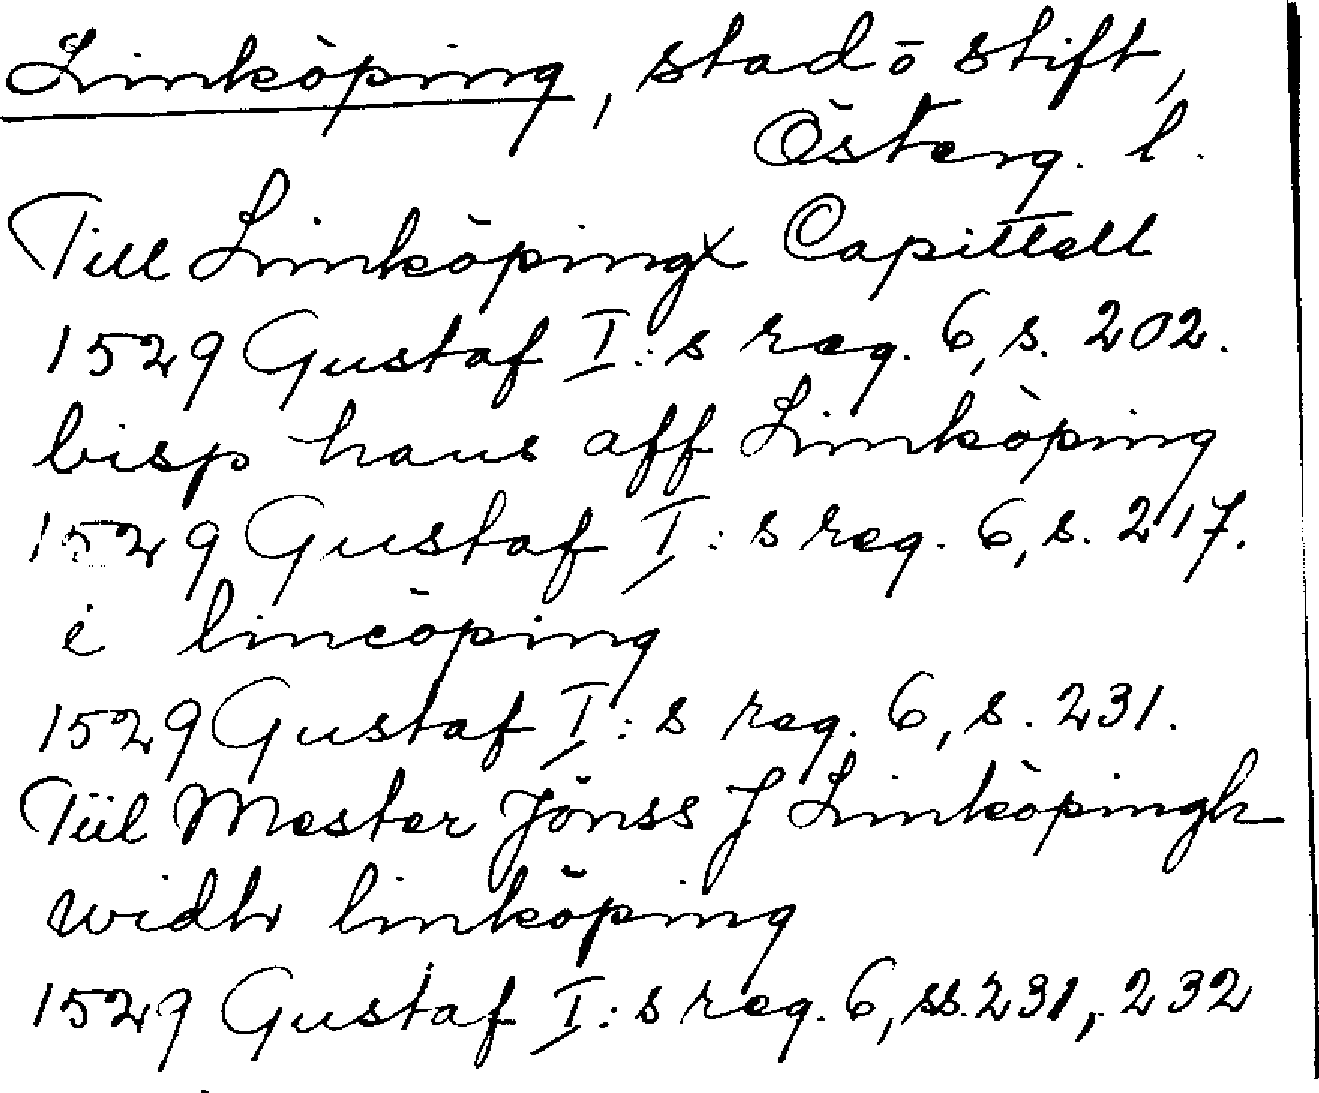 Linköping, stad o stift,
Österg. l.
Till Linköpingx Capittell
1529 Gustaf I:s reg. 6, s. 202.
bisp hans aff Linköping
1529 Gustaf I:s reg. 6, s. 217.
i lincöping
1529 Gustaf I:s reg. 6, s. 231.
Till Mester Jönss J Linköpingh
widh linköping
1529 Gustaf I:s reg. 6, ss. 231, 232